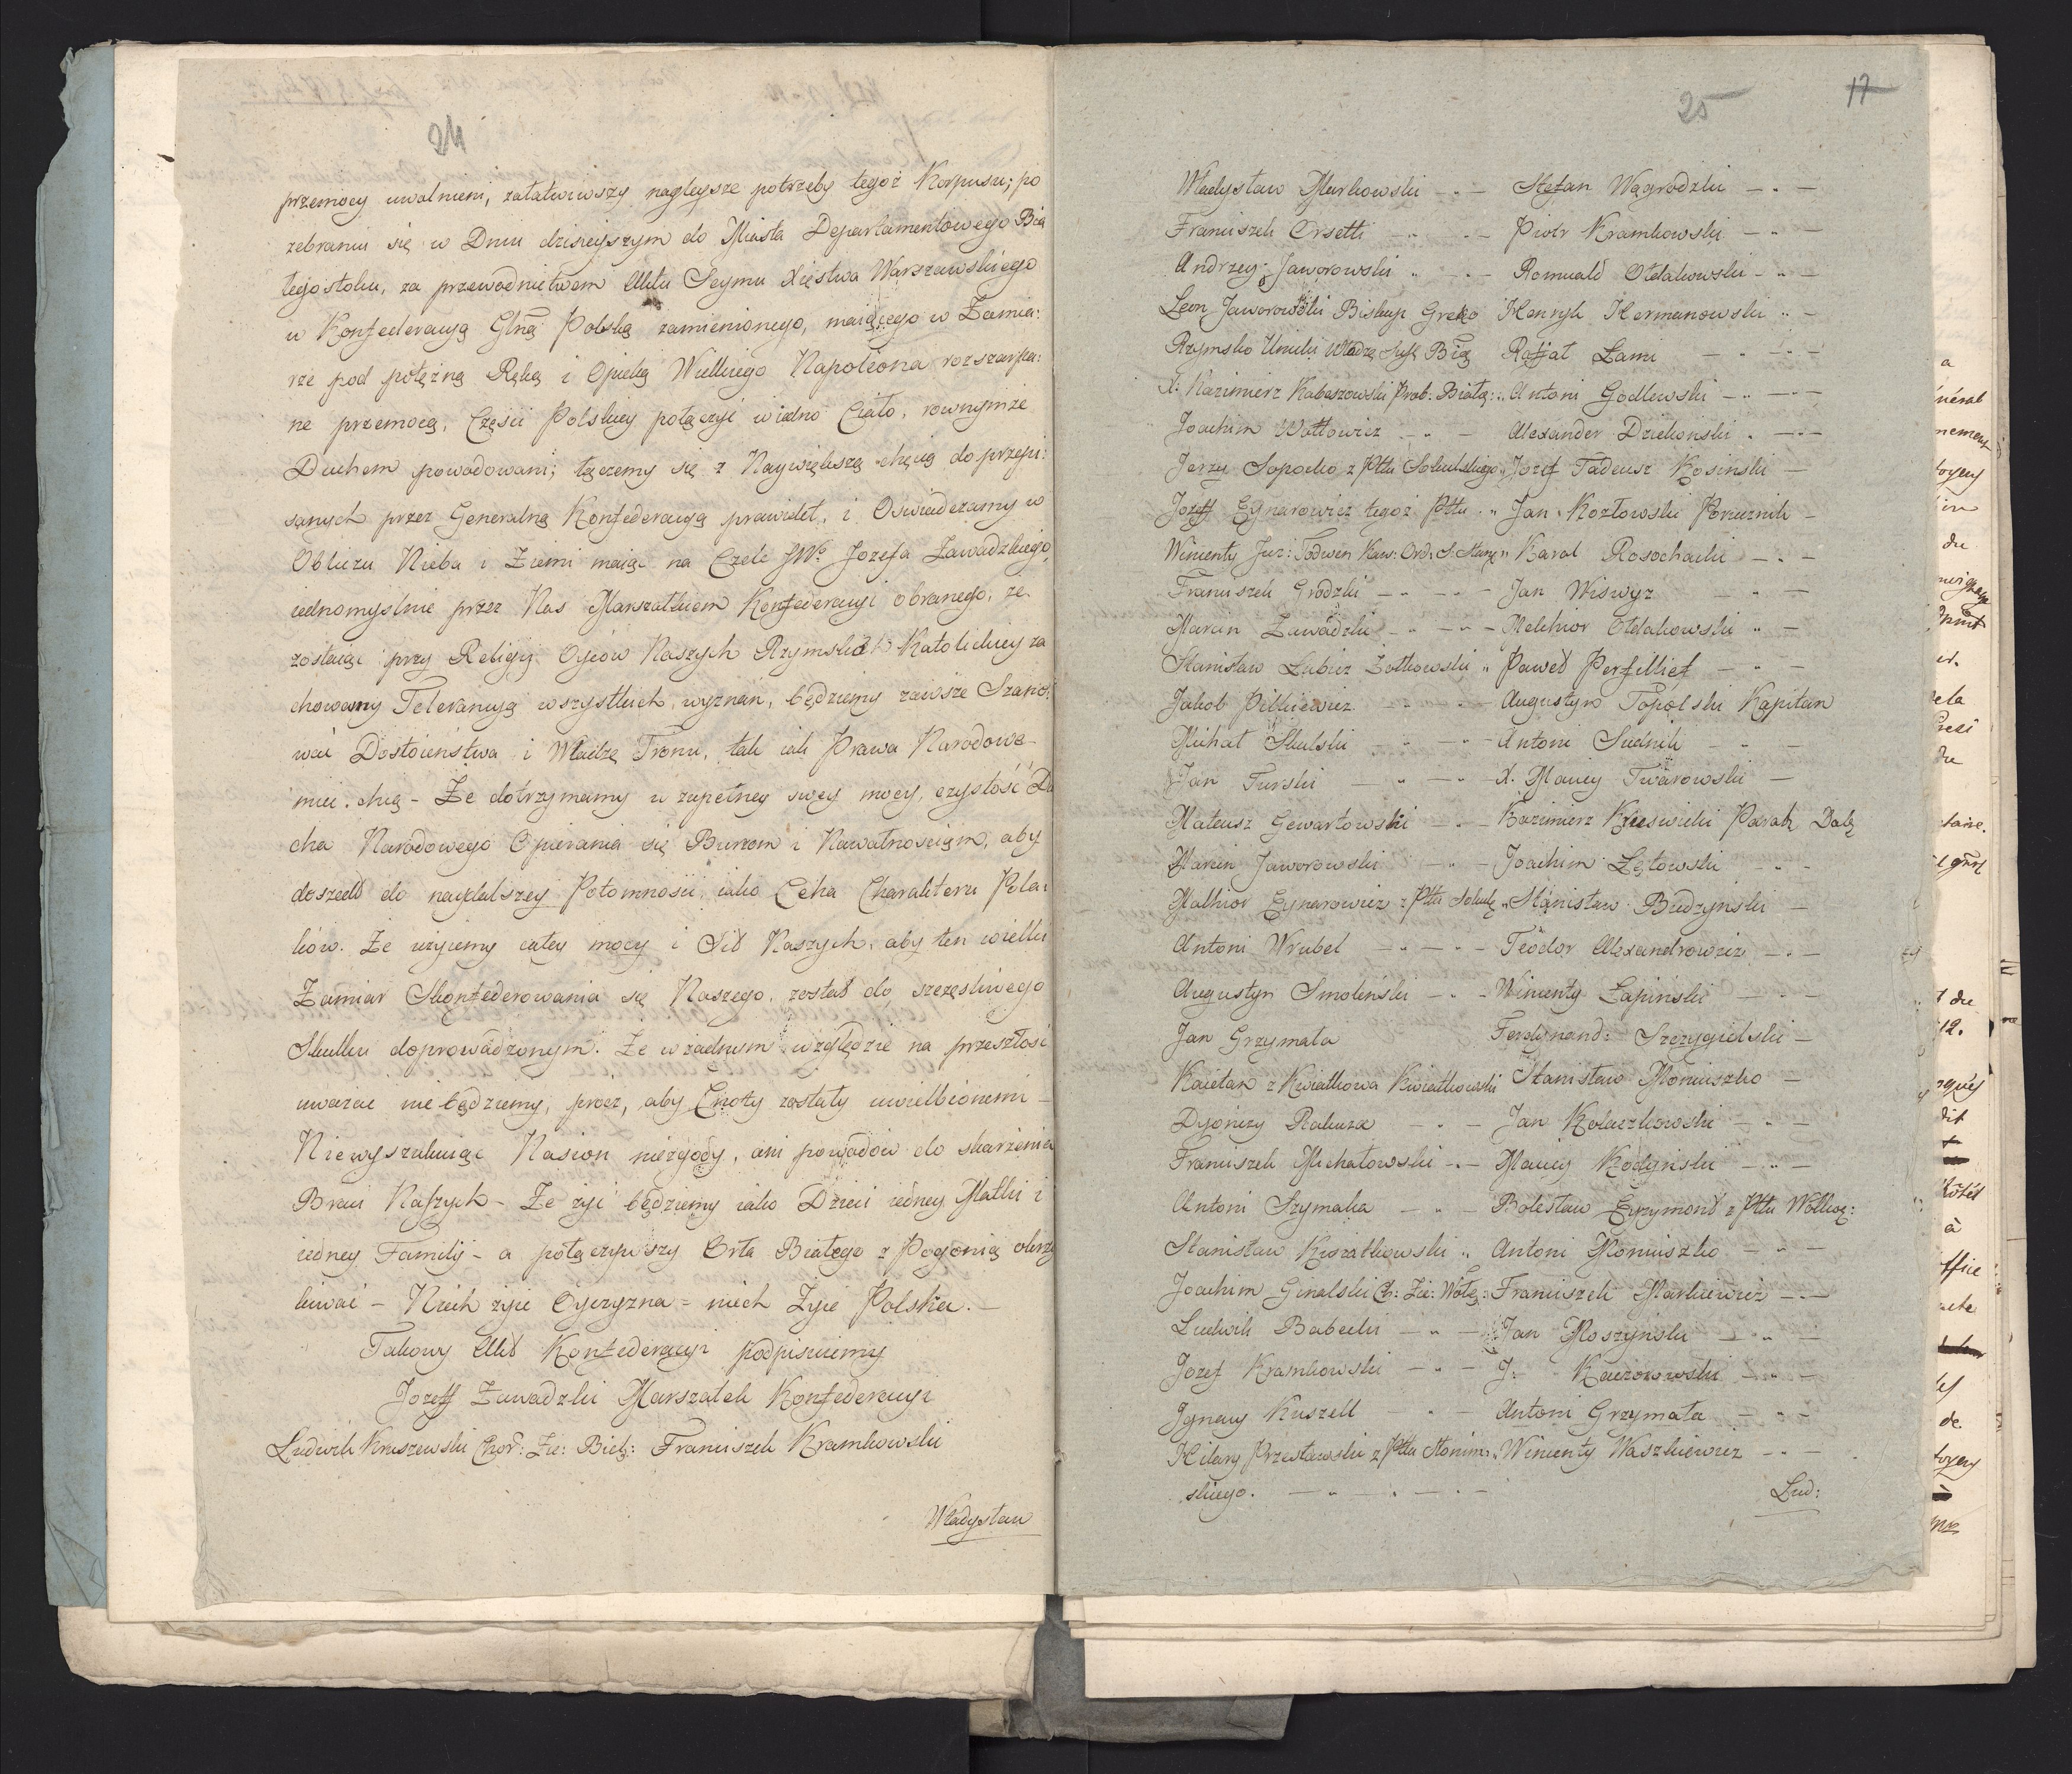 24
przemocy uwolnieni, załatwiwszy nagleysze potrzeby tegoż Korpusu; po
zebraniu się w Dniu dzisieyszym do Miasta Departamentowego Bia
łegostoku, za przewodnictwem Aktu Seymu Xięstwa Warszawskiego
w Konfederacyą Glną Polską zamienionego, maiącego w Zamia:
rze pod potężną Ręką i Opieką Wielkiego Napoleona rozszarpa:
ne przemocą, Części Polskiey połączyć w iedno Ciało, rownymże
Duchem powodowani; łączemy się z Naywiększą chęcią do przepi:
sanych przez Generalną Konfederacyą prawideł, i Oswiadczamy w
Obliczu Nieba i Ziemi maiąc na Czele JWo Jozefa Zawadzkiego,
iednomyslnie przez Nas Marszałkiem Konfederacyi obranego, że
zostaiąc przy Religij Oyców Naszych Rzymsko Katolickiey za
chowamy Tolerancyą wszystkich wyznań, będziemy zawsze Szano:
wać Dostoieństwa i Władzę Tronu, tak iak Prawa Narodowe
mieć chcą - Że dotrzymamy w zupełney swey mocy, czystość Du
cha Narodowego Opierania się Burzom i Nawałnościom, aby
doszedł do naydalszey Potomności, iako Cecha Charakteru Pola:
ków. Że użyiemy całey mocy i Sił Naszych, aby ten wielki
Zamiar Skonfederowania się Naszego, został do szczęsliwego
Skutku doprowadzonym. Że w żadnym względzie na przeszłość
uważać nie będziemy, procz, aby Cnoty zostały uwielbionemi -
Niewyszukuiąc Nasion niezgody, ani powodów do skarżenia
Braci Naszych - Że żyć będziemy iako Dzieci iedney Matki i
iedney Familij - a połączywszy Orła Białego z Pogonią okrzy
kiwać - Niech żyie Oyczyzna - niech Żyie Polska. -
Takowy Akt Konfederacyi podpisuiemy
Jozeff Zawadzki Marszałek Konfederacyi
Ludwik Kruszewski Chor: Zie: Biel: Franciszek Kramkowski
Władysław
17
25
Władysław Markowski - " - Stefan Wagrodzki - " -
Franciszek Orsetti - " - Piotr Kramkowski - " -
Andrzey Jaworowski " - Romuald Ołdakowski - " -
Leon Jaworowski Biskup Greko Henryk Hermanowski " -
Rzymsko Unicki Bią Rafał Łami - " -
X. Kazimierz Kabaszowski Prob: Białą: " Antoni Godlewski - " -
Joachim Wołłowicz - " - Alexander Dziekonski " -
Jerzy Sopocko z Pttu Sokulskiego " Jozef Tadeusz Kosinski -
Jozeff Eynarowicz tegoż Pttu " Jan Kozłowski Porucznik -
Wincenty Jur: Todwen Kaw: Ord: S: Stanę " Karol Rosochacki - " -
Franciszek Grodzki - " - Jan Wiswyz - " -
Marcin Zawadzki - " - Melchior Ołdakowski " -
Stanisław Lubicz Żołkowski " Paweł Perfillief - " -
Jakob Pilkiewicz - " - Augustyn Topolski Kapitan
Michał Skulski - " - Antoni Sudnik - " -
Jan Turski - " - X. Maciey Twarowski -
Mateusz Gewartowski - " - Kazimierz
Marcin Jaworowski - " - Joachim Łętowski - " -
Malhior Eynarowicz z Pttu Sokulę " Stanisław Budzynski -
Antoni Wrubel - " - Teodor Alexandrowicz - " -
Augustyn Smoleński - " - Wincenty Łapiński - " -
Jan Grzymała Ferdynand: Szczygielski -
Kaietan z Kwiatkowa Kwiatkowski Stanisław Moniuszko -
Dyonizy Rakuza - " - Jan Kołaczkowski - " -
Franciszek Michałowski - " - Maciey Kodyński - " -
Antoni Szymaka - " - Bolesław Eyzymont z Pttu Wołkow:
Stanisław Kwiatkowski " Antoni Moniuszko - " -
Joachim Ginalski Ch: Zie: Wołę: Franciszek Markiewicz - " -
Ludwik Babecki - " - Jan Moszynski - " -
Jozef Kramkowski - " - J. Kaczorowski - " -
Jgnacy Kuszell - " - Antoni Grzymała - " -
Hilary Przecławski z Pttu Słonim " Wincenty Waszkiewicz - " -
skiego. - " - Lud: